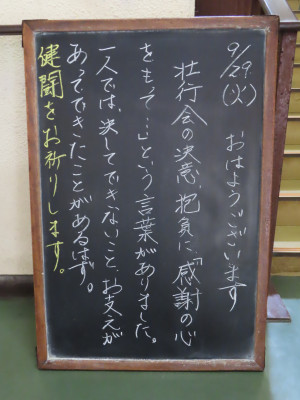 9/29(火)
おはようございます
壮行会の決意、抱負に、「感謝の心
をもって…」という言葉がありました。
一人では、決してできないこと、お支えが
あってできたことがあるはず。
健闘をお祈りします。